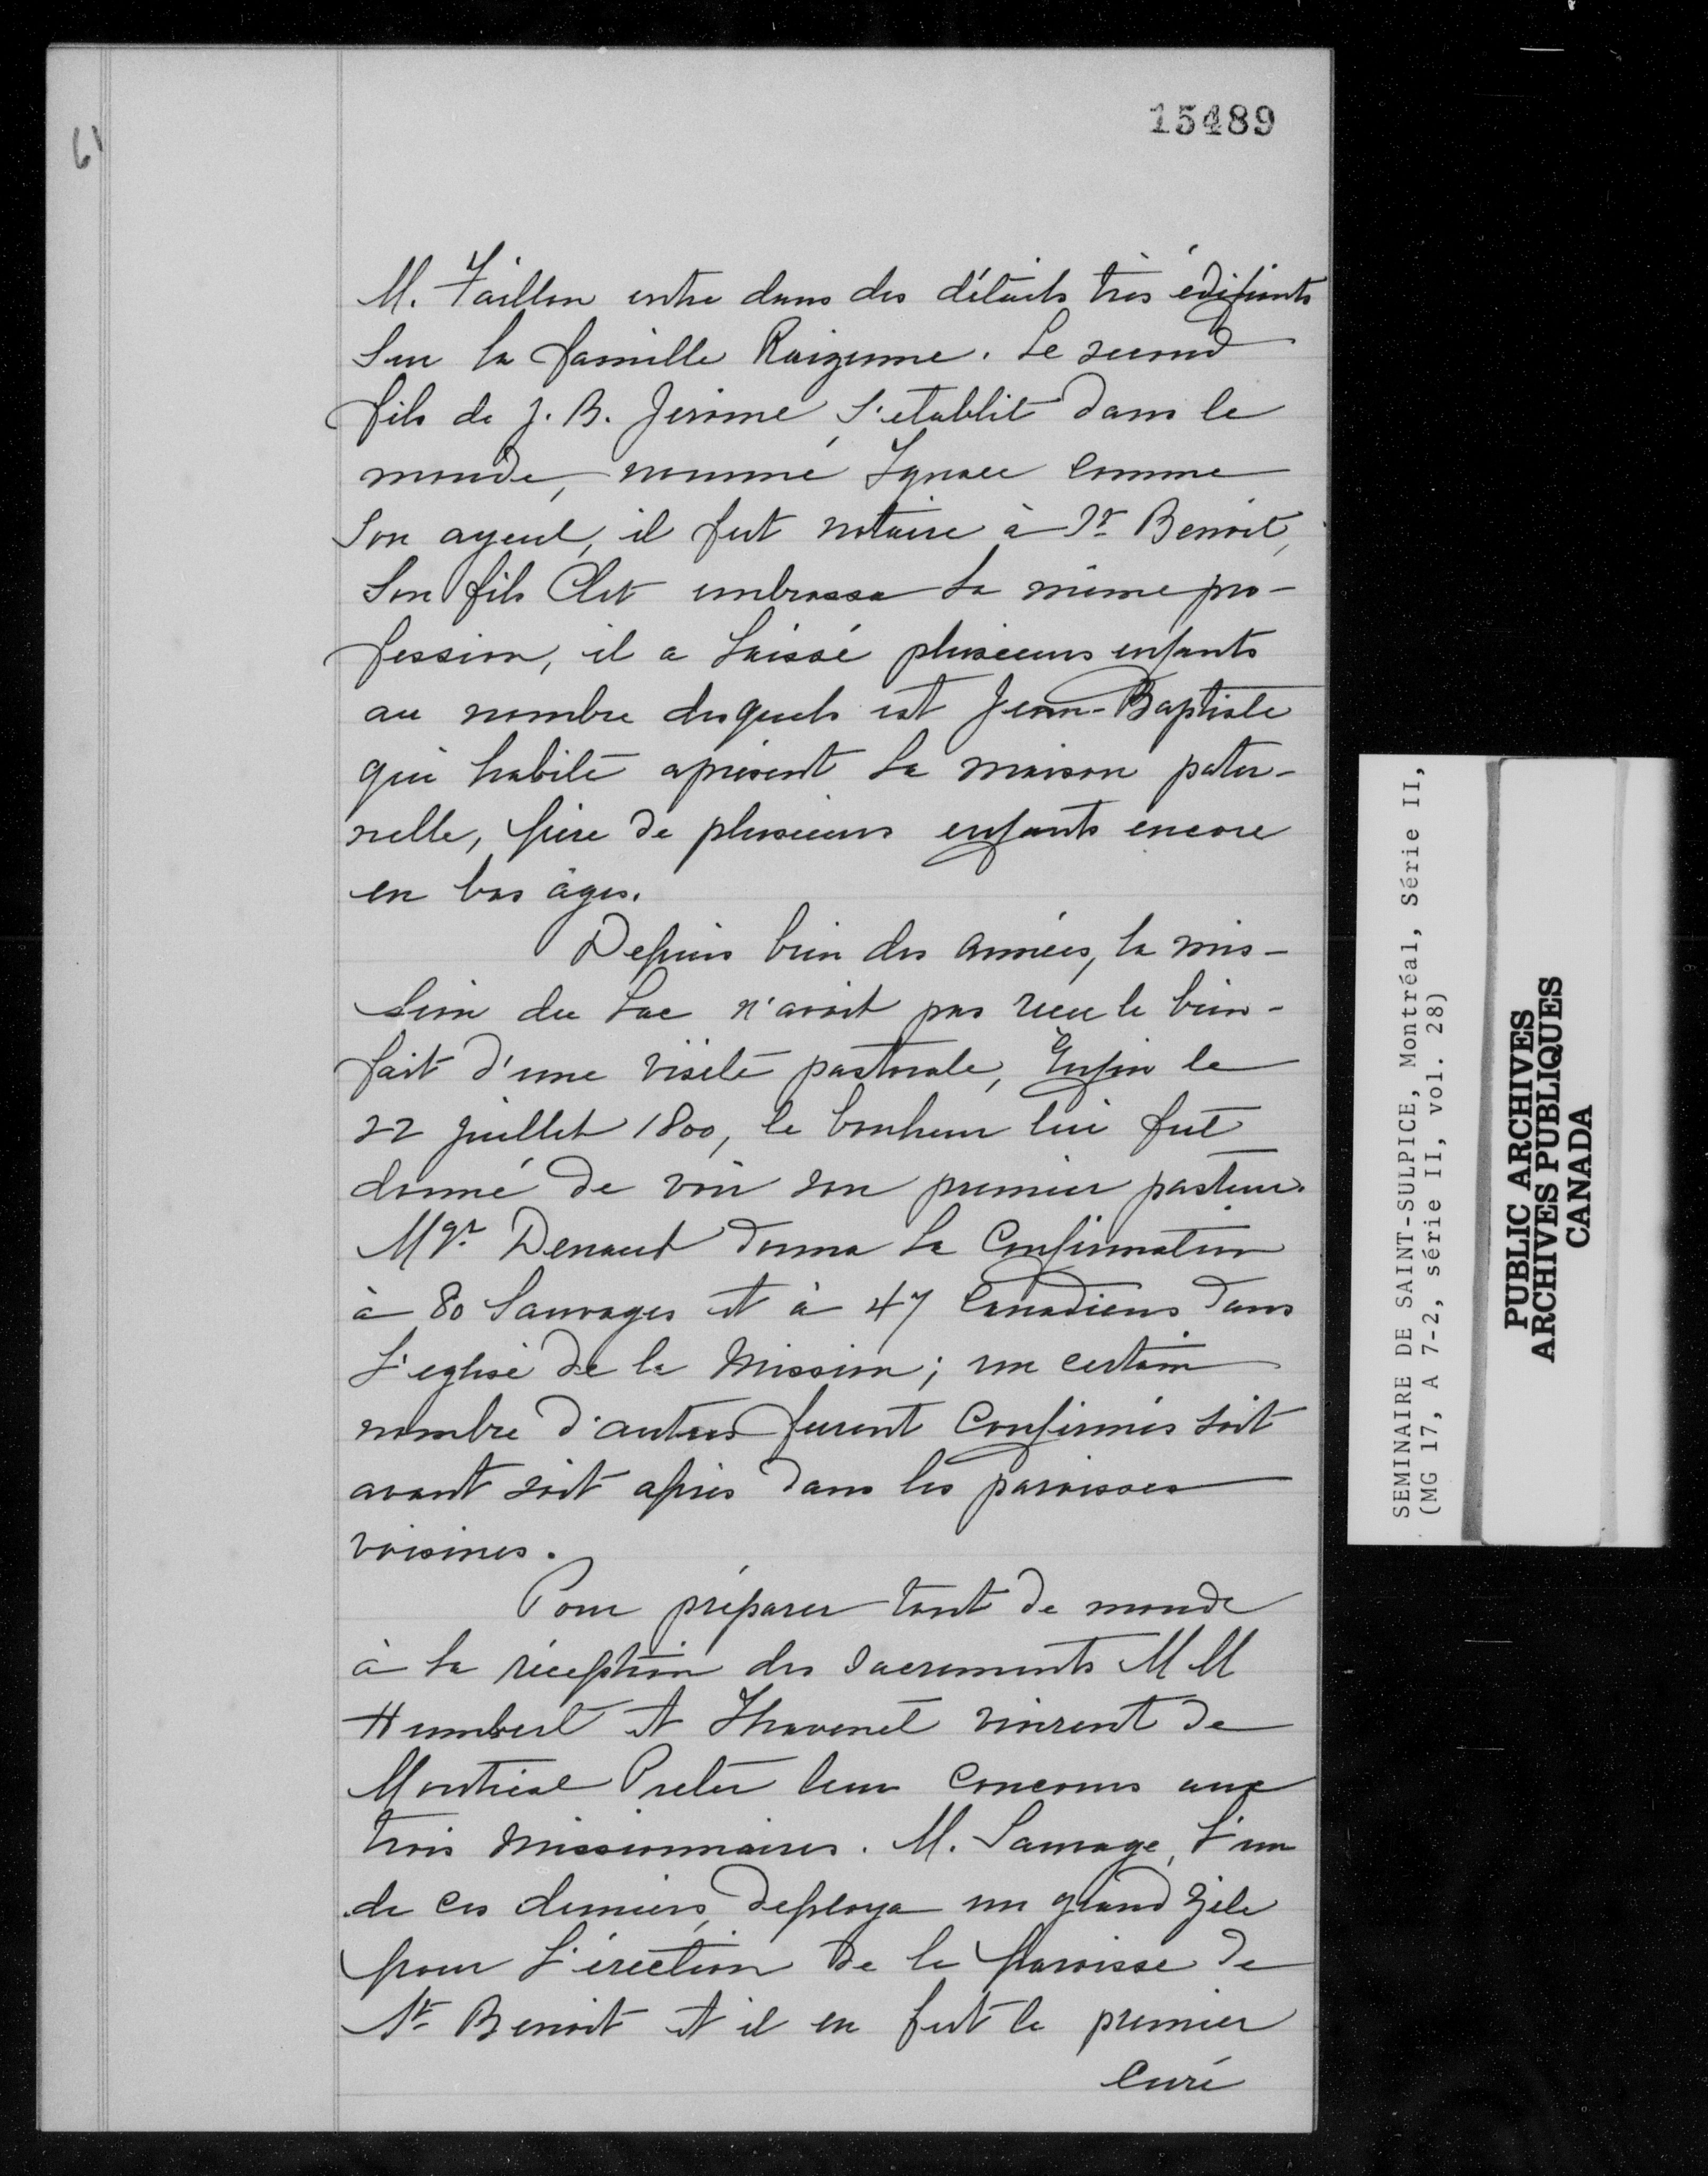 15489
61
M. Faillon entre dans des détails très édifiants
sur la famille Raizenne. Le second
fils de J. B. Jérome s'etablit dans le
monde, nommé Ignace comme
son ayeul, il fut notaire à St Benoit,
son fils Clet embrassa la même pro-
fession, il a laissé plusieurs enfants
au nombre desquels est Jean-Baptiste
qui habite apresent la maison pater-
nelle, père de plusieurs enfants encore
en bas âges.
Depuis bien des années, la mis-
sion du Lac n'avait pas reçu le bien-
fait d'une visite pastorale, Enfin le
22 juillet 1800, le bonheur lui fut
donné de voir son premier pasteur.
Mgr. Denaut donna la Confirmation
à 80 Sauvages et à 47 Canadiens dans
l'eglise de la Mission; un certain
nombre d'autres furent Confirmés soit
avant soit après dans les paroisses
voisines.
Pour préparer tant de monde
à la réception des Sacrements MM
Humbert et Thavenet vinrent de
Montréal Preter leur concours aux
trois Missionnaires. M. Sauvage, l'un
de ces derniers, deploya un grand zèle
pour l'érection de la paroisse de
St Benoit et il en fut le premier
Curé
SEMINAIRE DE SAINT-SULPICE, Montréal, Série II,
(MG 17, A 7-2, série II, vol. 28)
PUBLIC ARCHIVES
ARCHIVES PUBLIQUES
CANADA